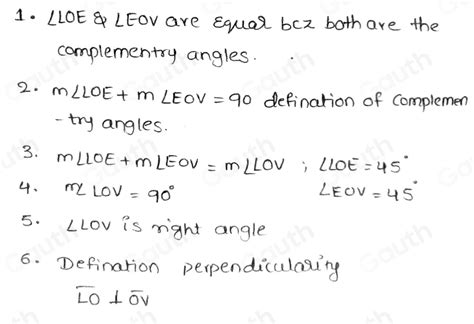 1. ∠LOE & ∠EOV are Equal bcz both are the
complementry angles.
2. m∠LOE + m∠EOV = 90 defination of Complemen
-try angles.
3. m∠LOE + m∠EOV = m∠LOV ; ∠LOE = 45°
4. m∠LOV = 90° ∠EOV = 45°
5. ∠LOV is right angle
6. Defination perpendicularity
L̅O̅ ⊥ O̅V̅